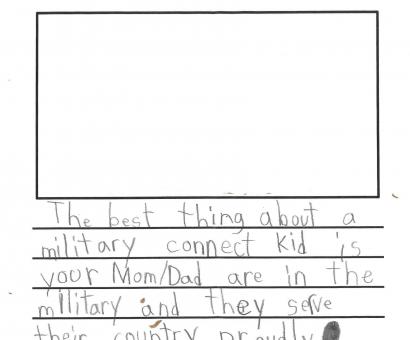 The best thing about a
military connect kid is
your Mom/Dad are in the
military and they serve
their country proudly